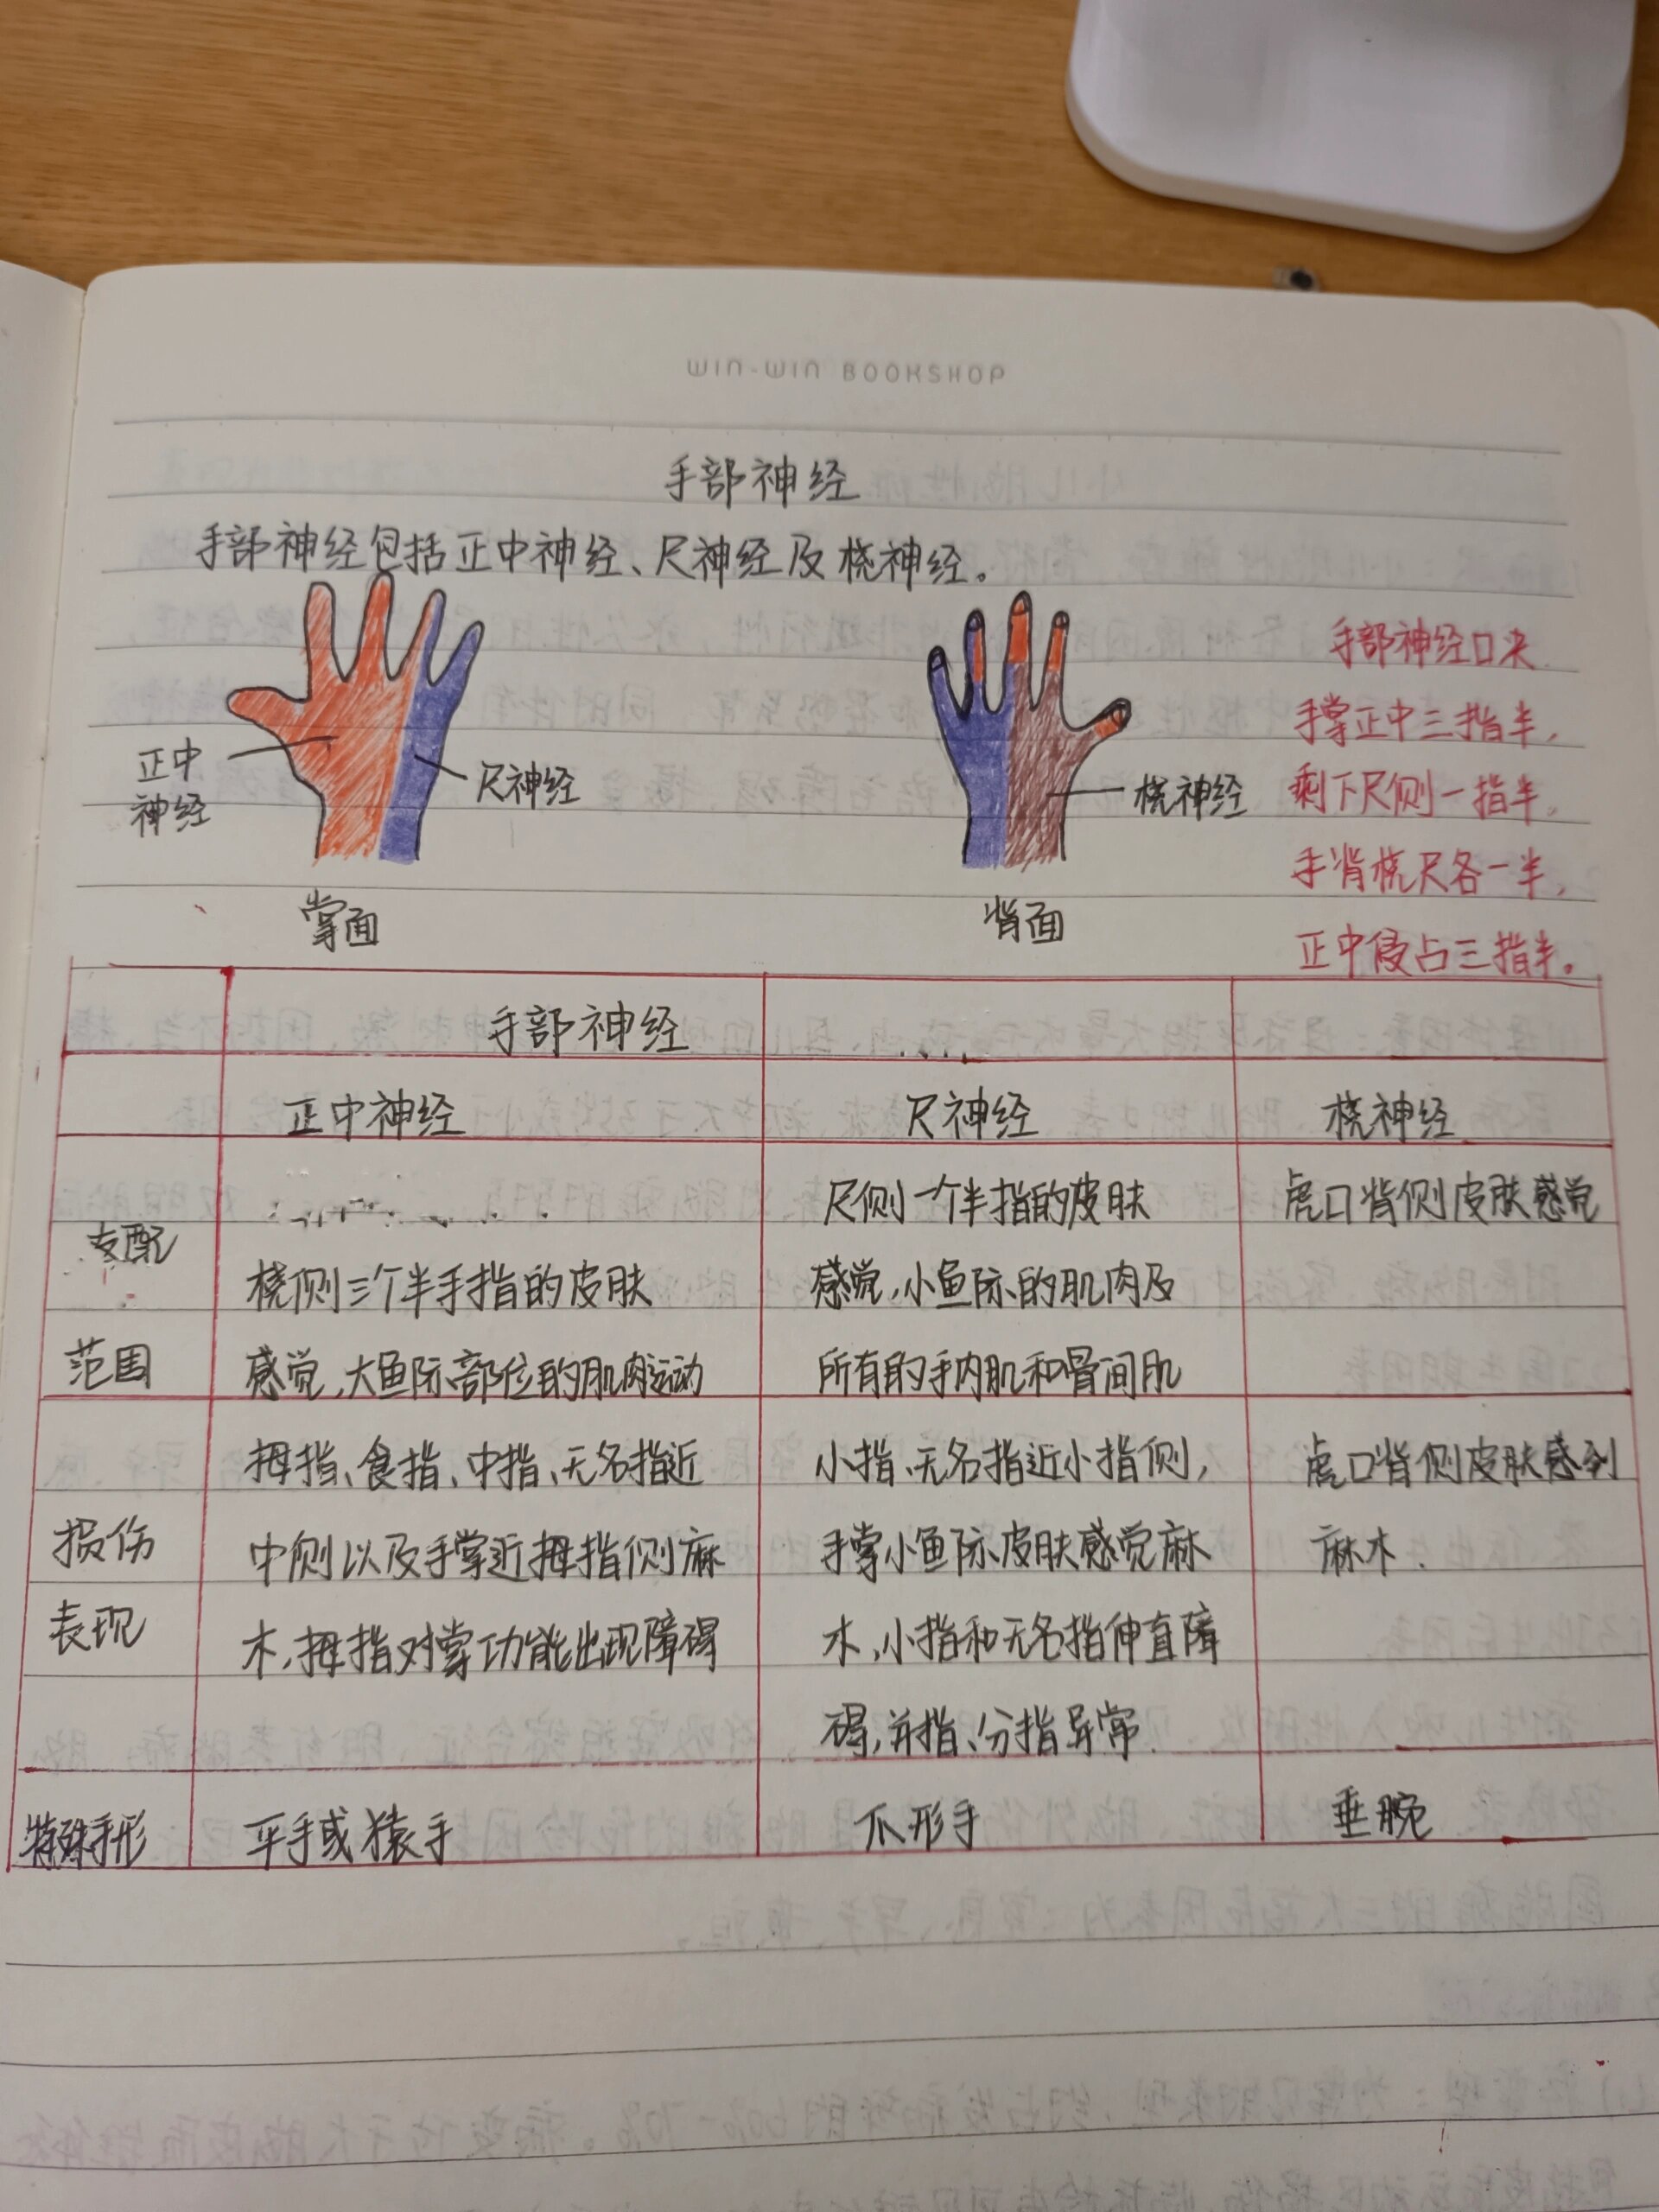 WIN-WIN BOOKSHOP
手部神经
手部神经包括正中神经、尺神经及桡神经。
正中
神经
尺神经
掌面
桡神经
背面
手部神经口夬
手掌正中三指半,
剩下尺侧一指半,
手背桡尺各一半,
正中侵占三指半。
手部神经
正中神经
尺神经
桡神经
支配
范围
桡侧三个半手指的皮肤
感觉,大鱼际部位的肌肉运动
尺侧一个半指的皮肤
感觉,小鱼际的肌肉及
所有的手内肌和骨间肌
虎口背侧皮肤感觉
损伤
表现
拇指、食指、中指、无名指近
中侧以及手掌近拇指侧麻
木,拇指对掌功能出现障碍
小指、无名指近小指侧,
手掌小鱼际皮肤感觉麻
木,小指和无名指伸直障
碍,并指、分指异常.
虎口背侧皮肤感到
麻木.
特殊手形
平手或猿手
爪形手
垂腕